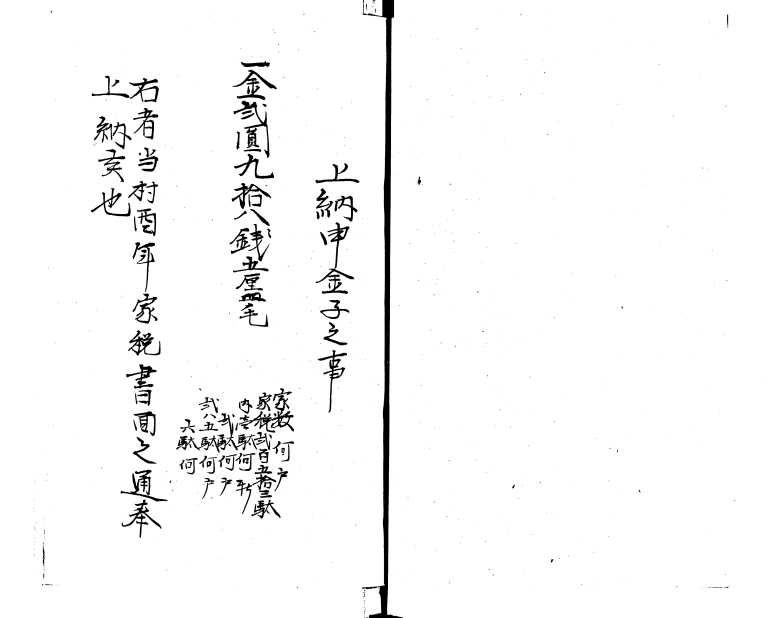 上納申金子之事
一金弐圓九拾八銭五厘四毛
家数何戸
家税弐百五拾三駄
内壱駄何軒
弐駄何戸
弐八五駄何戸
六駄何
右者当村酉年家税書面之通奉
上納候也